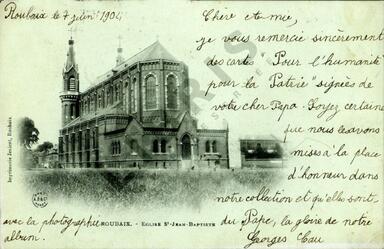 Roubaix le 7 juin 1904
Chère amie,
je vous remercie sincèrement
des cartes "Pour l'humanité
pour la Patrie" signées de
votre cher Papa. Soyez certaine
que nous les avons
mises à la place
d'honneur dans
notre collection et qu'elles sont,
avec la photographie du Pape, la gloire de notre
album.
Georges
ROUBAIX. - EGLISE St-JEAN-BAPTISTE
Imprimerie Roubaix